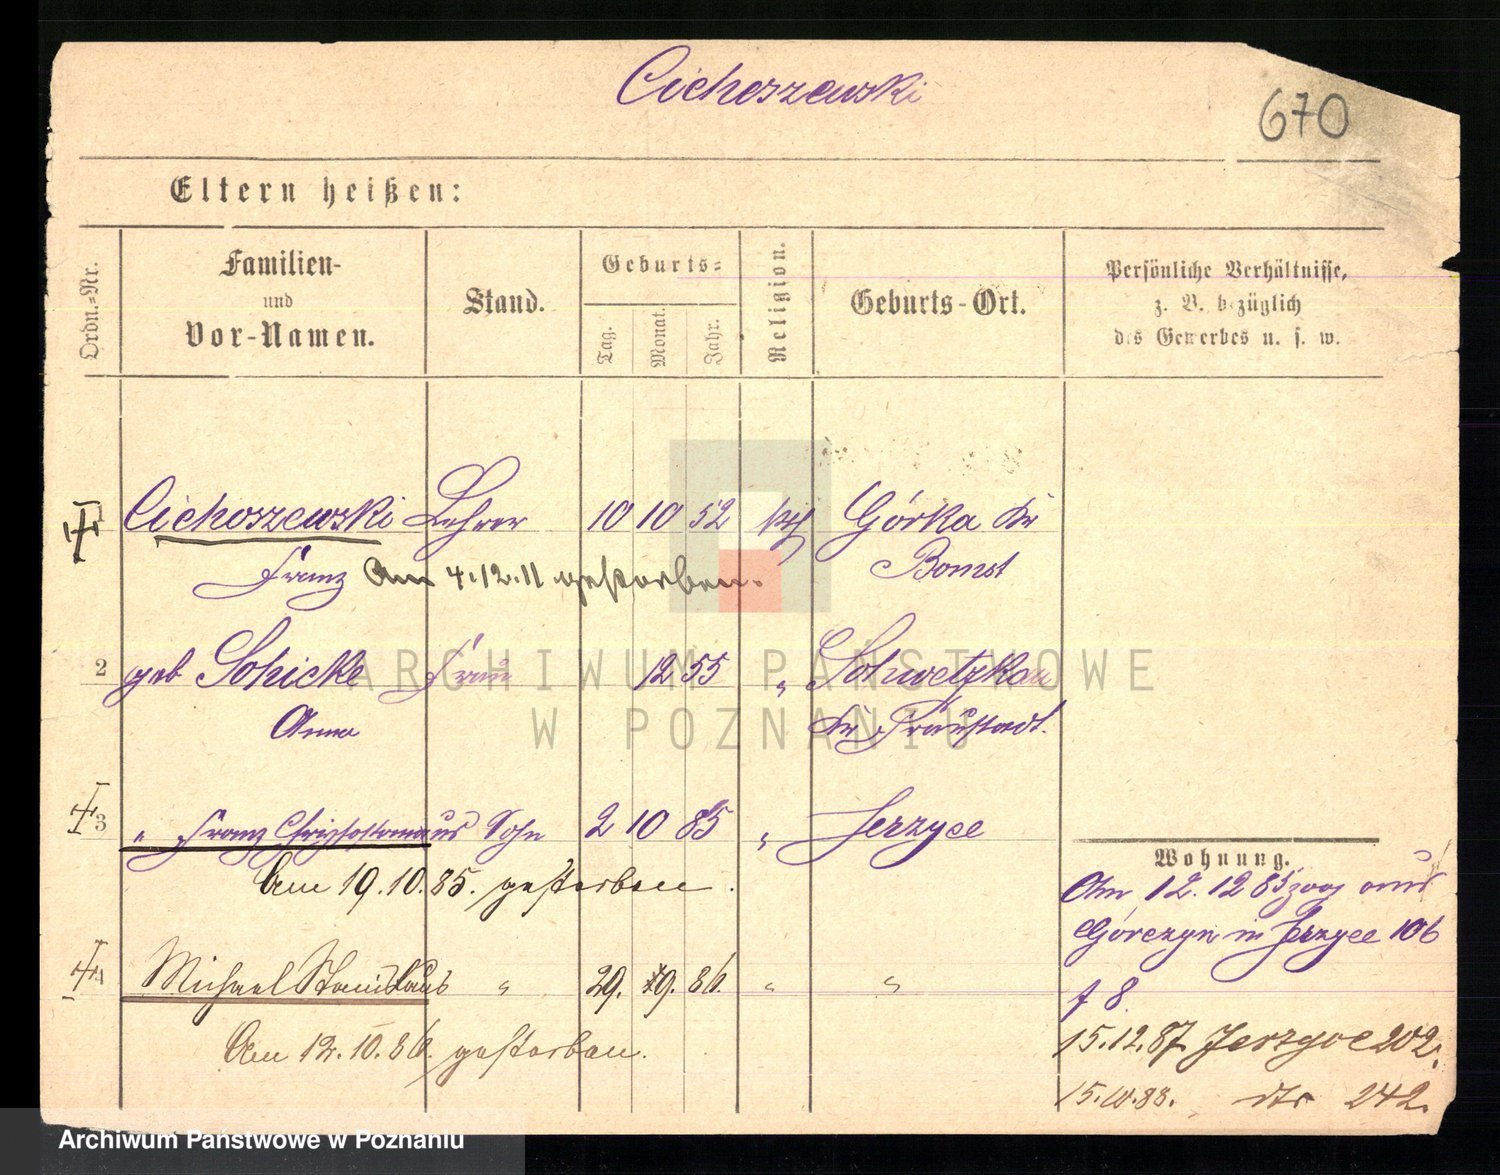 Cichoszewski
670
Eltern heißen:
Ordn.-Nr.
Familien-
und
Vor-Namen.
Stand.
Geburts-
Tag.
Monat.
Jahr.
Religion.
Geburts-Ort.
Persönliche Verhältnisse,
z. B. bezüglich
des Gewerbes u. s. w.
1 Cichoszewski Lehrer 10 10 52 kth Górka Kr
Franz Am 4.12.11 gestorben. Bomst
2 geb Schicke Frau 12 55 " Schwetzkau
Anna Kr Fraustadt.
3 " Franz Chrisostomus Sohn 2 10 85 " Jerzyce
Am 19.10.85. gestorben.
4 Michael Stanislaus " 29. 9. 86. " "
Am 12.10.86. gestorben.
Wohnung.
Am 12.12 85 zog aus
Górczyn in Jerzyce 106
f 8.
15.12.87 Jerzyce 202.
15.10.88. dto 242.
ARCHIWUM PAŃSTWOWE
W POZNANIU
Archiwum Państwowe w Poznaniu